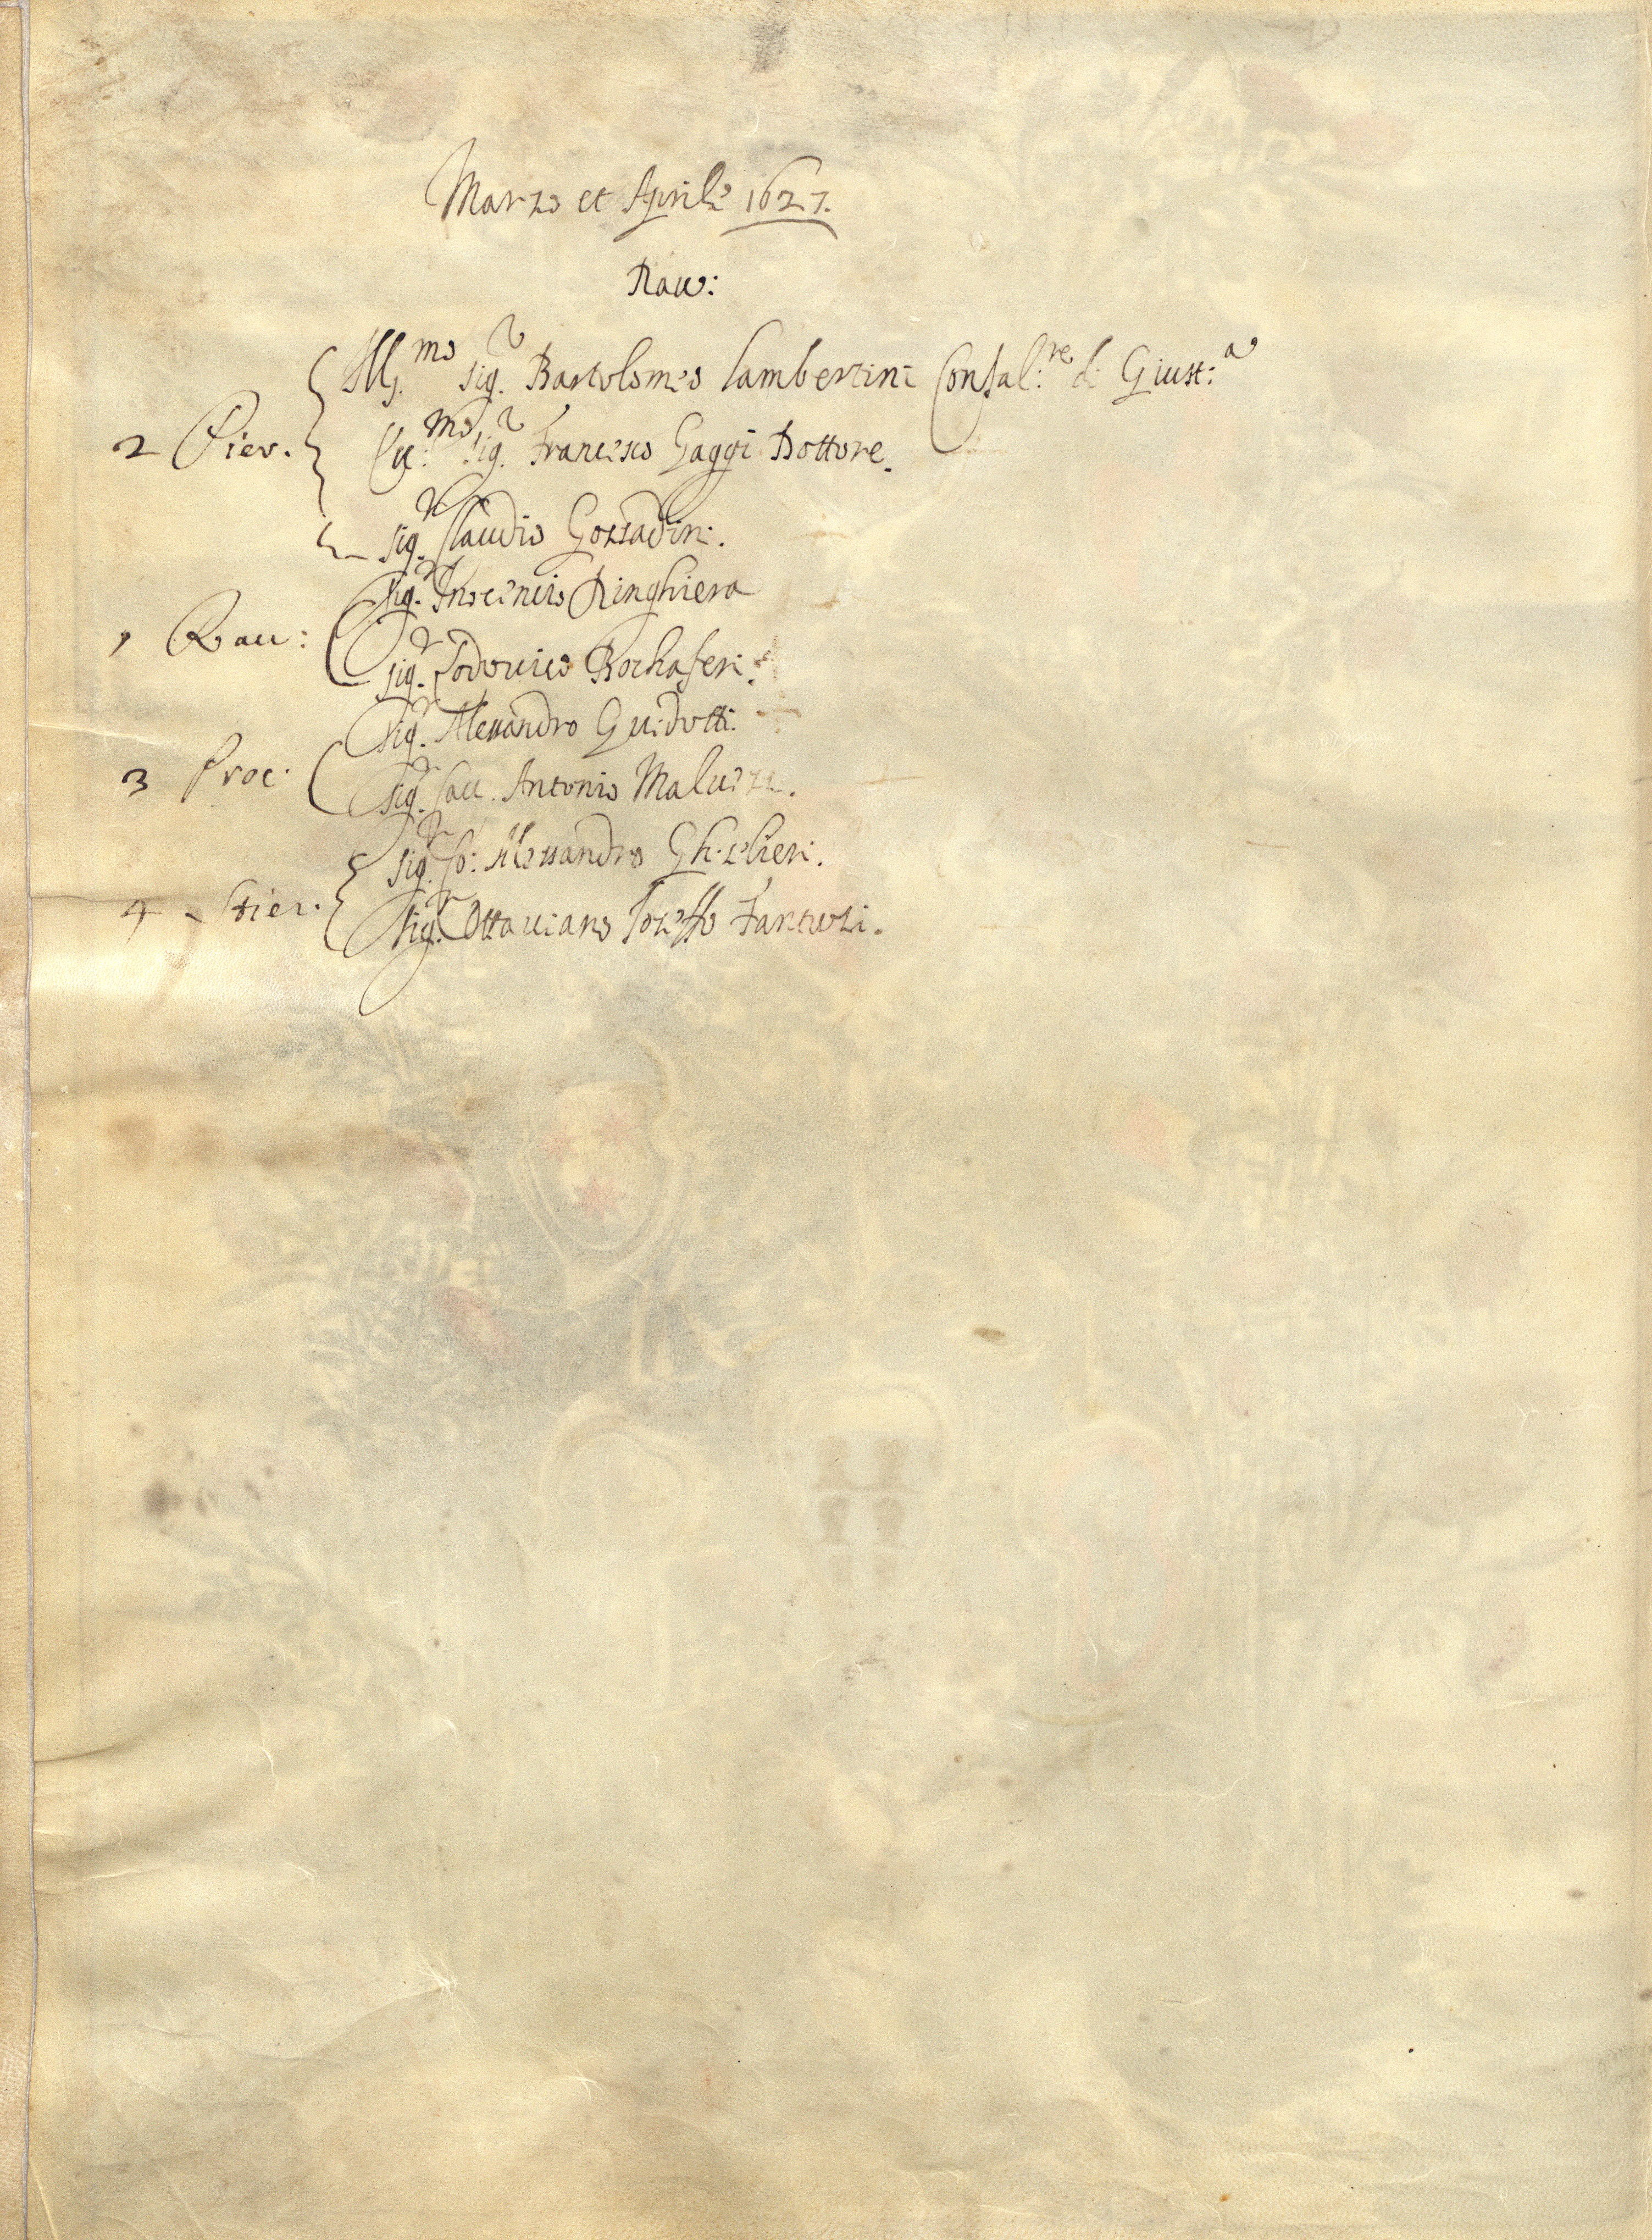 Marzo et Aprile 1627.
Rau:
Ill.mo Sig.r Bartolomeo Lambertini Confal:re di Giust:a
2 Pier. Ecc:mo Sig.r Francesco Gaggi Dottore.
Sig.r Claudio Gozzadini.
Sig.r Inocencio Ringhiera
1 Rau: Sig.r Lodovico Bochaferi.
Sig.r Alessandro Guidotti.
3 Proc: Sig.r Cau. Antonio Maluezzi.
Sig.r Co: Alessandro Ghisilieri.
4 Stier. Sig.r Ottauiano Fantuzi.